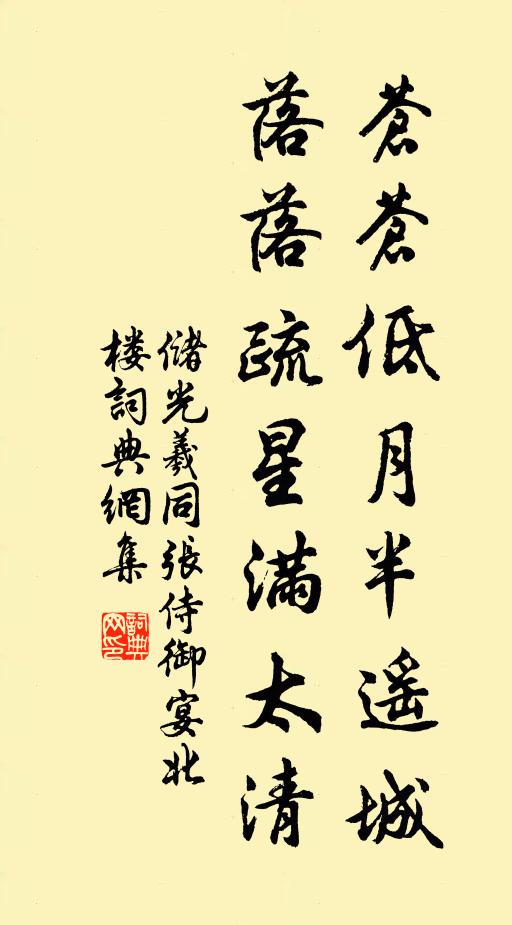 蒼蒼低月半遥城
落落疏星滿太清
儲光羲同張侍御宴北
楼詞典網集
詞典网印